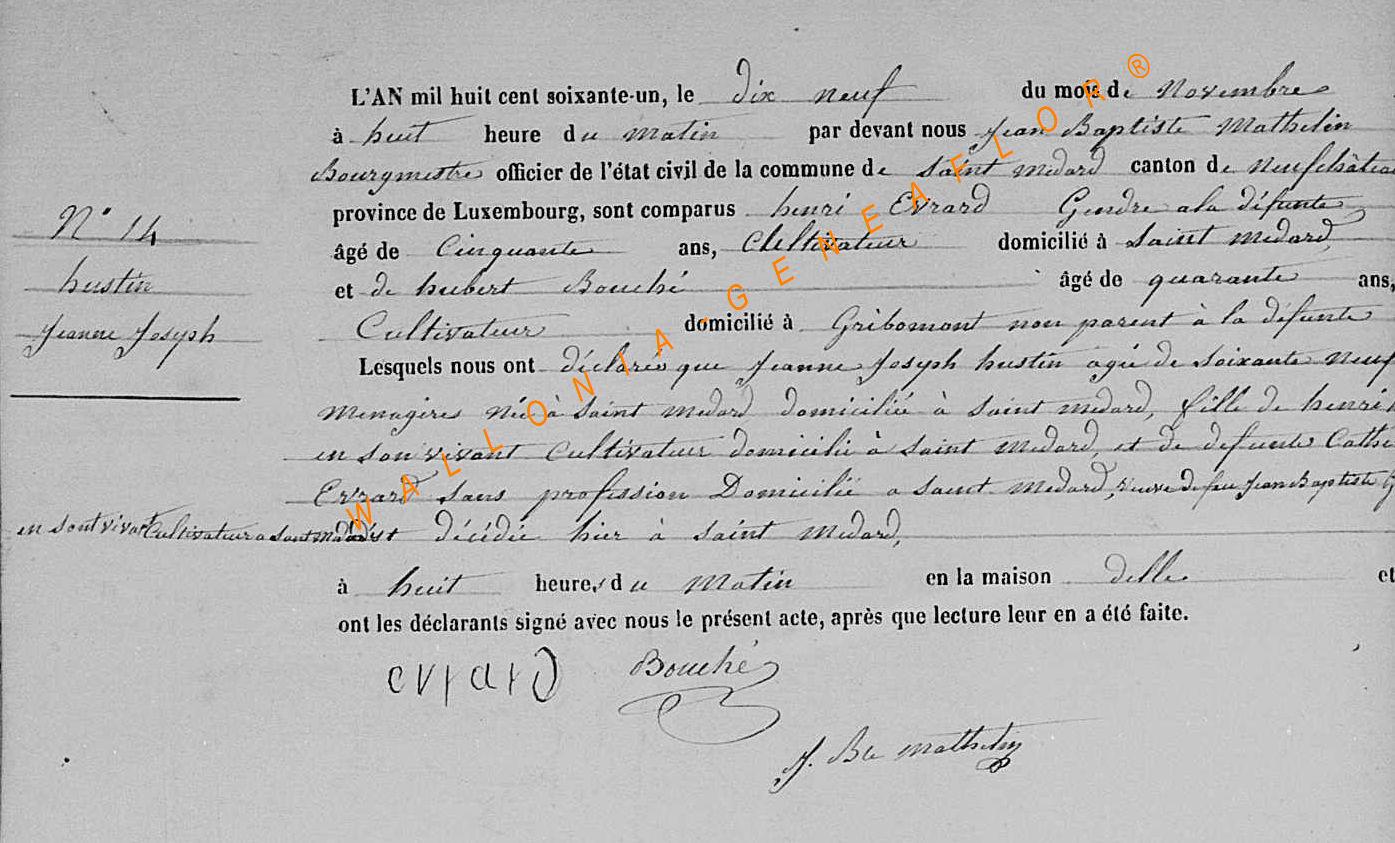 L'AN mil huit cent soixante-un, le dix neuf du mois de Novembre
à huit heure du matin par devant nous Jean Baptiste Mathelin
Bourgmestre officier de l'état civil de la commune de Saint Medard canton de Neufchâteau
province de Luxembourg, sont comparus henri Evrard Gendre a la défunte
N° 14
âgé de Cinquante ans, Cultivateur domicilié à Saint Medard
hustin
et de hubert Bouché âgé de quarante ans,
Jeanne Joseph
Cultivateur domicilié à Gribomont non parent à la défunte
Lesquels nous ont déclarés que Jeanne Joseph hustin agée de Soixante Neuf
Menagères Née à Saint Medard domiciliée à Saint Medard, fille de henri
en son vivant Cultivateur domicilié à Saint Medard, et de defunte Cathe
Evrard Sans profession Domicilié a Saint Medard, veuve de feu Jean Baptiste G
en sont vivant Cultivateur a Saint Medard est décédée hier à Saint Medard,
à huit heures du Matin en la maison delle et
ont les déclarants signé avec nous le présent acte, après que lecture leur en a été faite.
evrard Bouché
J. Bte Mathelin
WALLONIA-GENEAFLOR®